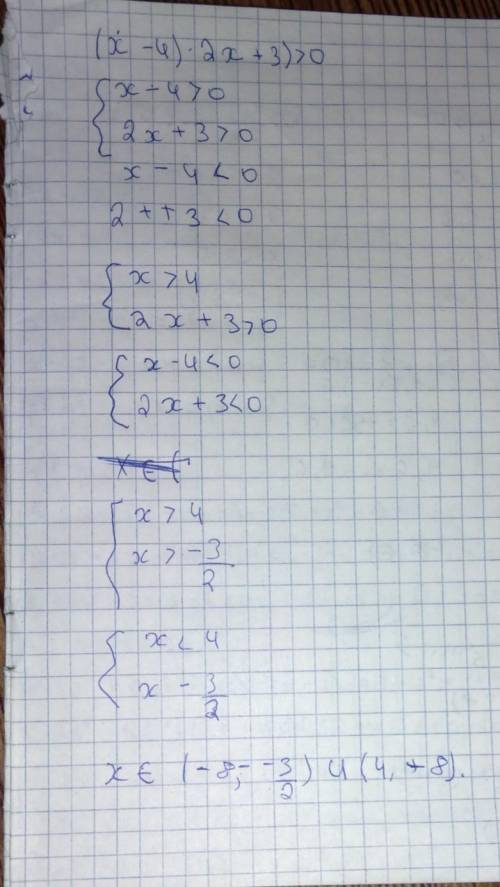 (x - 4) · 2x + 3) > 0
{ x - 4 > 0
2x + 3 > 0
x - 4 < 0
2 + + 3 < 0
{ x > 4
2x + 3 > 0
{ x - 4 < 0
2x + 3 < 0
x ∈ (
{ x > 4
x > -3/2
{ x < 4
x - 3/2
x ∈ (-8; -3/2) ∪ (4, +8).